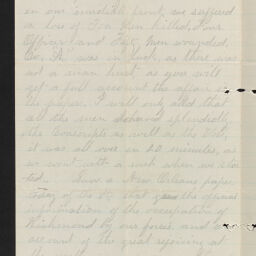 on our immediate front, we suffered
a loss of Ten Men killed, Four
Officers and Fifty Men wounded,
Co. "A" was in luck, as there was
not a man hurt, as you will
get a full account of the affair in
the papers, I will only add that
all the men behaved splendidly
the Conscripts as well as the Vols,
it was all over in 20 minutes, as
we went with a rush when we star
ted. I saw a New Orleans paper
today of the that gave the official
information of the occupation of
Richmond by our forces, and
account of the great rejoicing at